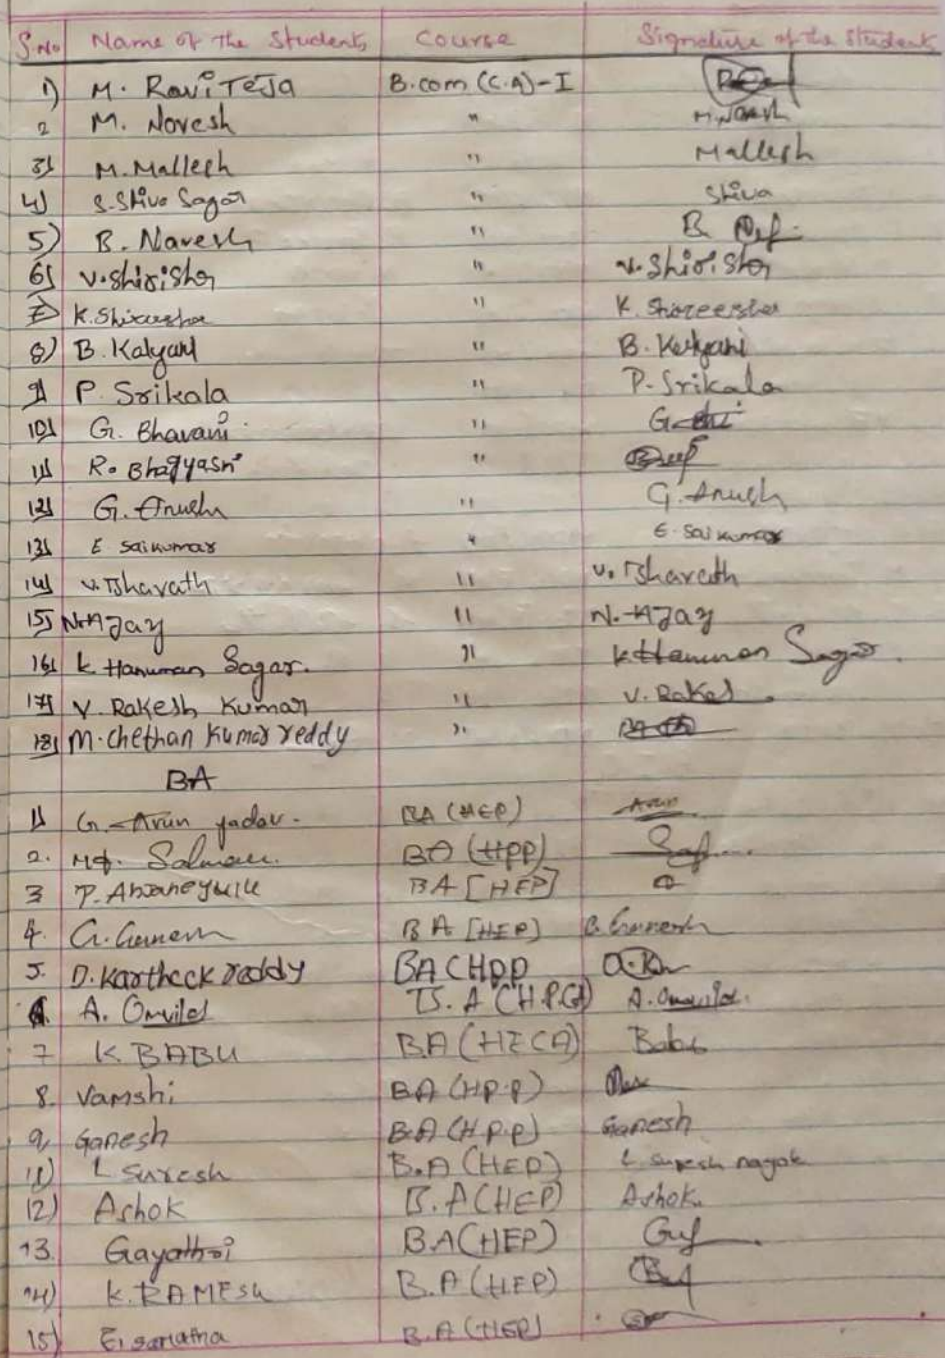 S.No Name of the Students Course Signature of the Student
1) M. Ravi Teja B.com (C.A)-I
2 M. Novesh " M.Naresh
3) M. Mallesh " Mallesh
4) S. Shiva Sagar " Shiva
5) B. Naresh " B.
6) V. Shirisha " V. Shirisha
7) K. Shireesha " K. Shireesha
8) B. Kalyani " B. Kalyani
9) P. Srikala " P. Srikala
10) G. Bhavani " G.
11) R. Bhagyasri "
12) G. Anusha " G. Anush
13) E Saikumar " E. Saikumar
14) V. Bharath " V. Bharath
15) N. Ajay " N. Ajay
16) K. Hanuman Sagar. " K Hanuman Sagar.
17) V. Rakesh Kumar " V. Rakesh
18) M. Chethan Kumar reddy "
BA
1) G. Arun yadav. BA (HEP) Arun
2. Md. Salman. BA (HPP)
3 P. Anjaneyulu BA [HEP]
4. G. Ganesh BA [HEP] G. Ganesh
5. D. Kartheek reddy BA CHPP
6. A. B.A (H.P.CA) A.
7 K. BABU B.A (HECA) Babu
8. Vamshi BA (HP.P)
9, Ganesh B.A (H.P.P) Ganesh
11) L Suresh B.A (HEP) L. Suresh nayak
12) Ashok B.A (HEP) Ashok
13. Gayathri BA (HEP)
14) K. RAMESH B.A (HEP)
15) B.A (HEP)